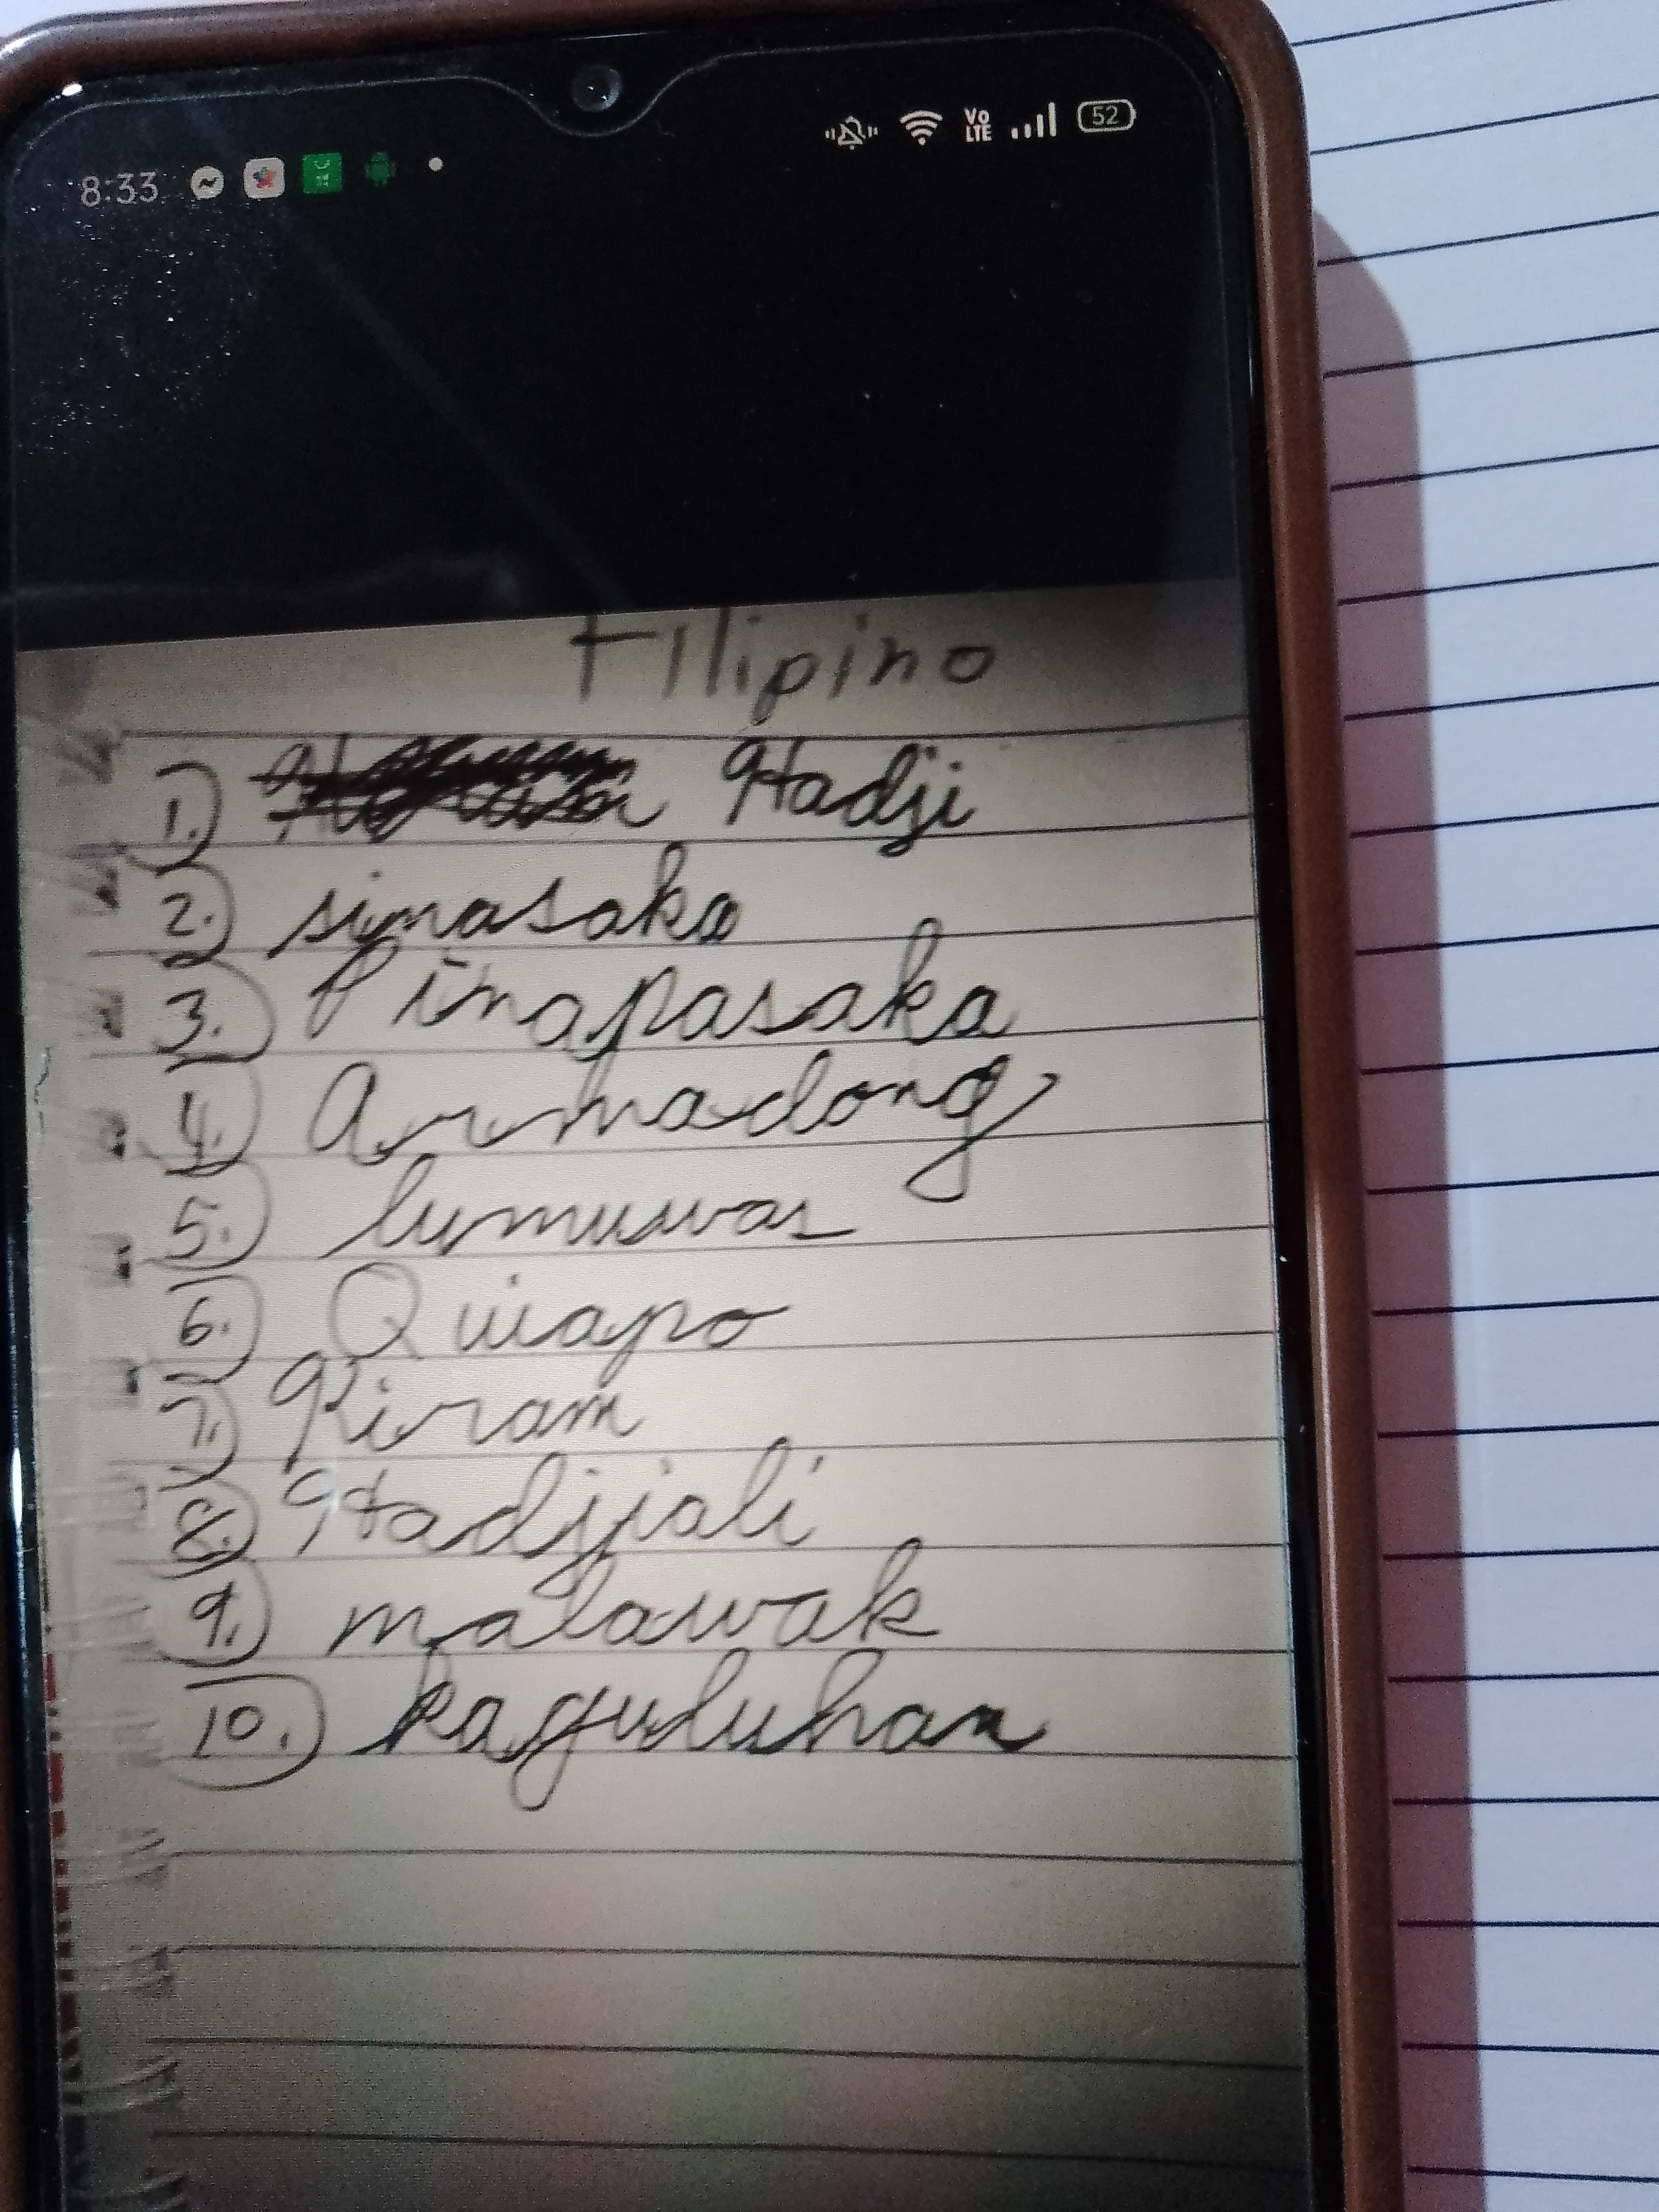 8:33
Vo LTE 52
Filipino
1. Hadji
2. sinasaka
3. Pinapasaka
4. Armadong
5. lumuwas
6. Quiapo
7. Kiram
8. Hadjiali
9. malawak
10. kaguluhan